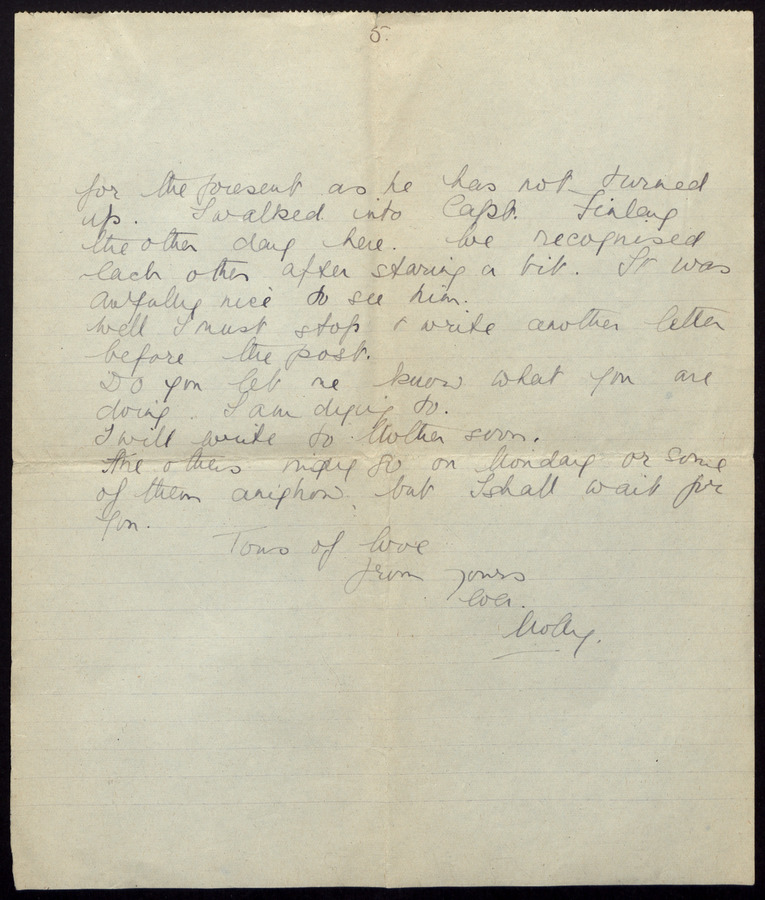 5.
for the present as he has not turned
up. I walked into Capt. Finlay
the other day here. We recognised
each other after staring a bit. It was
awfully nice to see him.
Well I must stop & write another letter
before the post.
Do you let me know what you are
doing. I am dying to.
I will write to Mother soon.
The others may go on Monday or some
of them anyhow, but I shall wait for
you.
Tons of love
from yours
ever.
Molly.